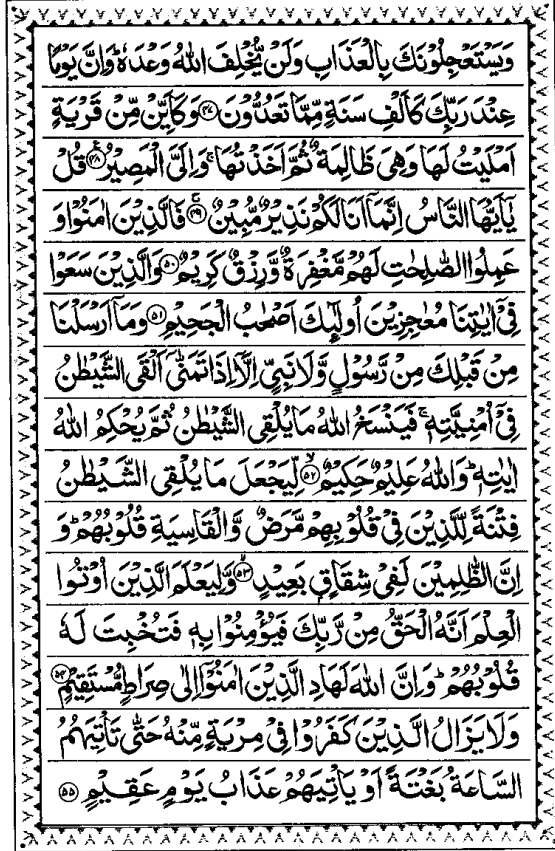 وَيَسْتَعْجِلُوْنَكَ بِالْعَذَابِ وَلَنْ يُّخْلِفَ اللّٰهُ وَعْدَهٗ ؕ وَاِنَّ يَوْمًا
عِنْدَ رَبِّكَ كَاَلْفِ سَنَةٍ مِّمَّا تَعُدُّوْنَ ﴿۴۷﴾ وَكَاَيِّنْ مِّنْ قَرْيَةٍ
اَمْلَيْتُ لَهَا وَهِيَ ظَالِمَةٌ ثُمَّ اَخَذْتُهَا ۚ وَاِلَيَّ الْمَصِيْرُ ﴿۴۸﴾ قُلْ
يٰۤاَيُّهَا النَّاسُ اِنَّمَاۤ اَنَا لَكُمْ نَذِيْرٌ مُّبِيْنٌ ۚ ﴿۴۹﴾ فَالَّذِيْنَ اٰمَنُوْا وَ
عَمِلُوا الصّٰلِحٰتِ لَهُمْ مَّغْفِرَةٌ وَّرِزْقٌ كَرِيْمٌ ﴿۵۰﴾ وَالَّذِيْنَ سَعَوْا
فِيْۤ اٰيٰتِنَا مُعٰجِزِيْنَ اُولٰٓئِكَ اَصْحٰبُ الْجَحِيْمِ ﴿۵۱﴾ وَمَاۤ اَرْسَلْنَا
مِنْ قَبْلِكَ مِنْ رَّسُوْلٍ وَّلَا نَبِيٍّ اِلَّاۤ اِذَا تَمَنّٰۤى اَلْقَى الشَّيْطٰنُ
فِيْۤ اُمْنِيَّتِهٖ ۚ فَيَنْسَخُ اللّٰهُ مَا يُلْقِى الشَّيْطٰنُ ثُمَّ يُحْكِمُ اللّٰهُ
اٰيٰتِهٖ ؕ وَاللّٰهُ عَلِيْمٌ حَكِيْمٌ ۙ ﴿۵۲﴾ لِّيَجْعَلَ مَا يُلْقِى الشَّيْطٰنُ
فِتْنَةً لِّلَّذِيْنَ فِيْ قُلُوْبِهِمْ مَّرَضٌ وَّالْقَاسِيَةِ قُلُوْبُهُمْ ؕ وَ
اِنَّ الظّٰلِمِيْنَ لَفِيْ شِقَاقٍۭ بَعِيْدٍ ۙ ﴿۵۳﴾ وَّلِيَعْلَمَ الَّذِيْنَ اُوْتُوا
الْعِلْمَ اَنَّهُ الْحَقُّ مِنْ رَّبِّكَ فَيُؤْمِنُوْا بِهٖ فَتُخْبِتَ لَهٗ
قُلُوْبُهُمْ ؕ وَاِنَّ اللّٰهَ لَهَادِ الَّذِيْنَ اٰمَنُوْۤا اِلٰى صِرَاطٍ مُّسْتَقِيْمٍ ﴿۵۴﴾
وَلَا يَزَالُ الَّذِيْنَ كَفَرُوْا فِيْ مِرْيَةٍ مِّنْهُ حَتّٰى تَاْتِيَهُمُ
السَّاعَةُ بَغْتَةً اَوْ يَاْتِيَهُمْ عَذَابُ يَوْمٍ عَقِيْمٍ ﴿۵۵﴾